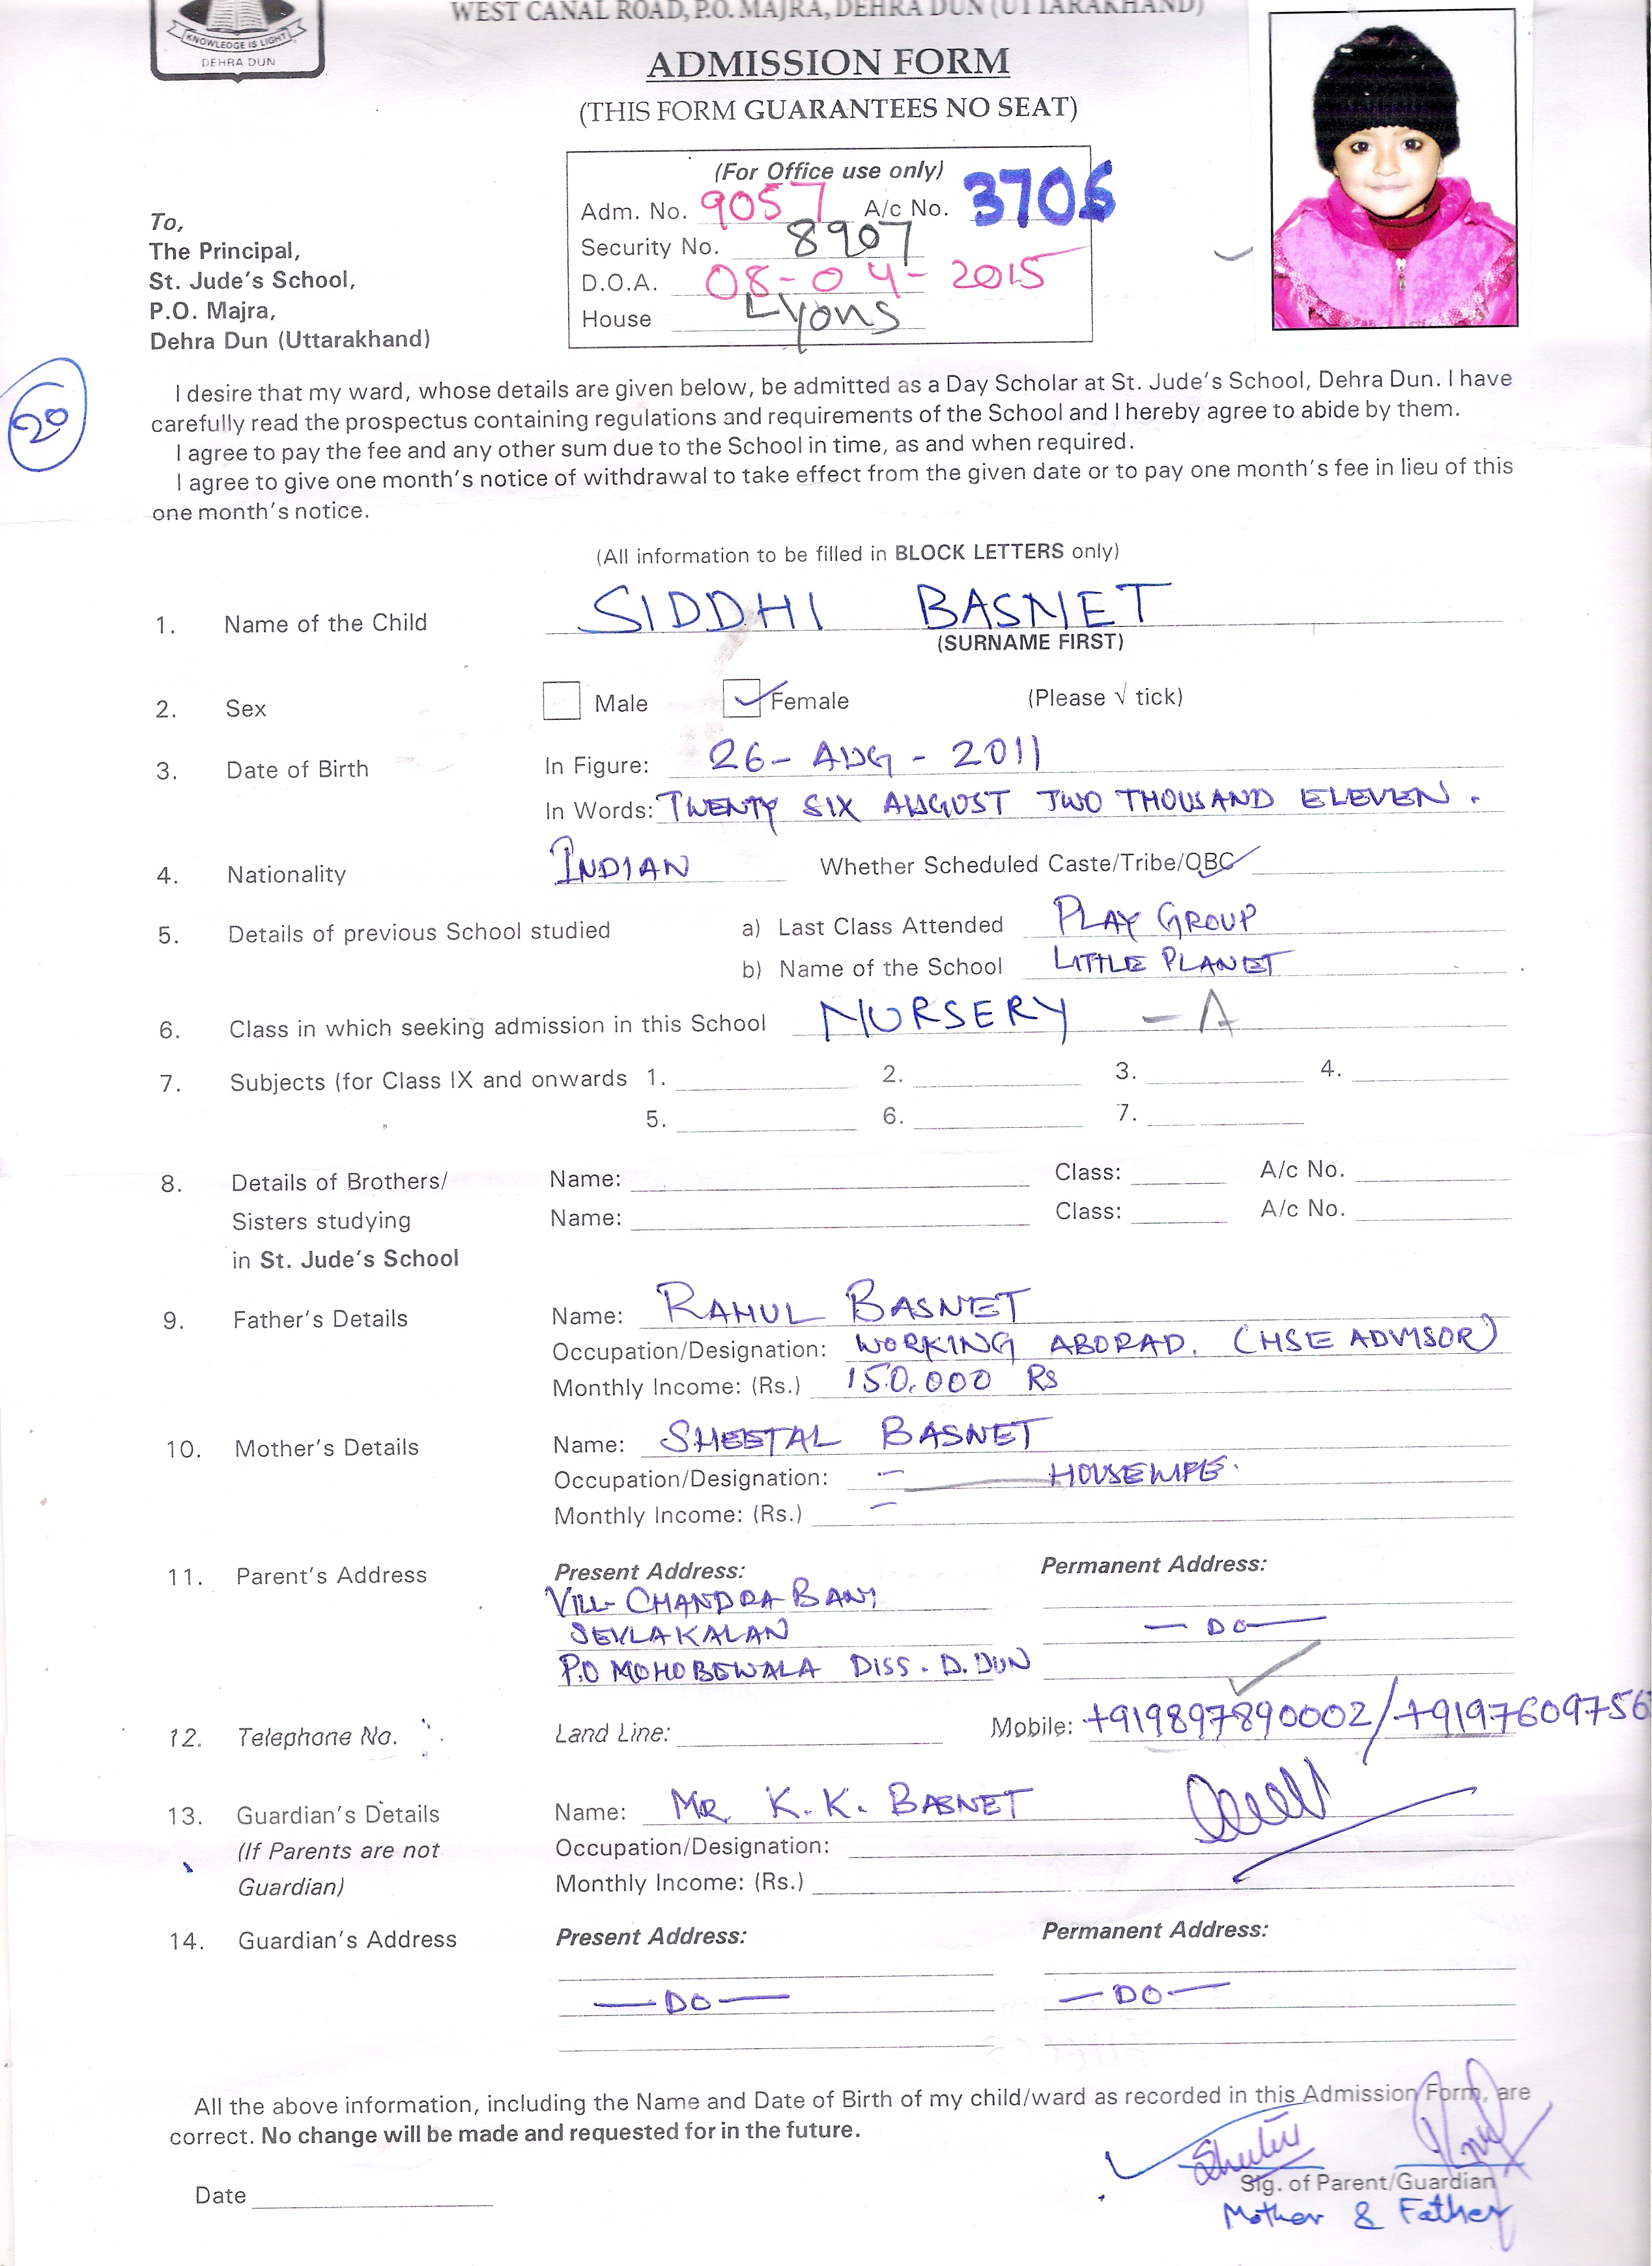 KNOWLEDGE IS LIGHT
DEHRA DUN
WEST CANAL ROAD, P.O. MAJRA, DEHRA DUN (UTTARAKHAND)
ADMISSION FORM
(THIS FORM GUARANTEES NO SEAT)
(For Office use only)
Adm. No. 9057 A/c No. 3706
Security No. 8907
D.O.A. 08-04-2015
House Lyons
To,
The Principal,
St. Jude's School,
P.O. Majra,
Dehra Dun (Uttarakhand)
20
I desire that my ward, whose details are given below, be admitted as a Day Scholar at St. Jude's School, Dehra Dun. I have
carefully read the prospectus containing regulations and requirements of the School and I hereby agree to abide by them.
I agree to pay the fee and any other sum due to the School in time, as and when required.
I agree to give one month's notice of withdrawal to take effect from the given date or to pay one month's fee in lieu of this
one month's notice.
(All information to be filled in BLOCK LETTERS only)
1. Name of the Child SIDDHI BASNET
(SURNAME FIRST)
2. Sex Male ✓ Female (Please √ tick)
3. Date of Birth In Figure: 26- AUG - 2011
In Words: TWENTY SIX AUGUST TWO THOUSAND ELEVEN.
4. Nationality INDIAN Whether Scheduled Caste/Tribe/OBC ✓
5. Details of previous School studied a) Last Class Attended PLAY GROUP
b) Name of the School LITTLE PLANET
6. Class in which seeking admission in this School NURSERY - A
7. Subjects (for Class IX and onwards 1. 2. 3. 4.
5. 6. 7.
8. Details of Brothers/ Name: Class: A/c No.
Sisters studying Name: Class: A/c No.
in St. Jude's School
9. Father's Details Name: RAHUL BASNET
Occupation/Designation: WORKING ABORAD. (HSE ADVISOR)
Monthly Income: (Rs.) 150.000 Rs
10. Mother's Details Name: SHEETAL BASNET
Occupation/Designation: — HOUSEWIFE.
Monthly Income: (Rs.) —
11. Parent's Address Present Address: Permanent Address:
VILL- CHANDRA BANI
SEVLAKALAN — DO —
P.O MOHOBEWALA DISS. D. DUN
12. Telephone No. Land Line: Mobile: +919897890002/+9197609756
13. Guardian's Details Name: MR. K.K. BASNET
(If Parents are not Occupation/Designation:
Guardian) Monthly Income: (Rs.)
14. Guardian's Address Present Address: Permanent Address:
— DO — — DO —
All the above information, including the Name and Date of Birth of my child/ward as recorded in this Admission Form, are
correct. No change will be made and requested for in the future.
Date
Sig. of Parent/Guardian
Mother & Father